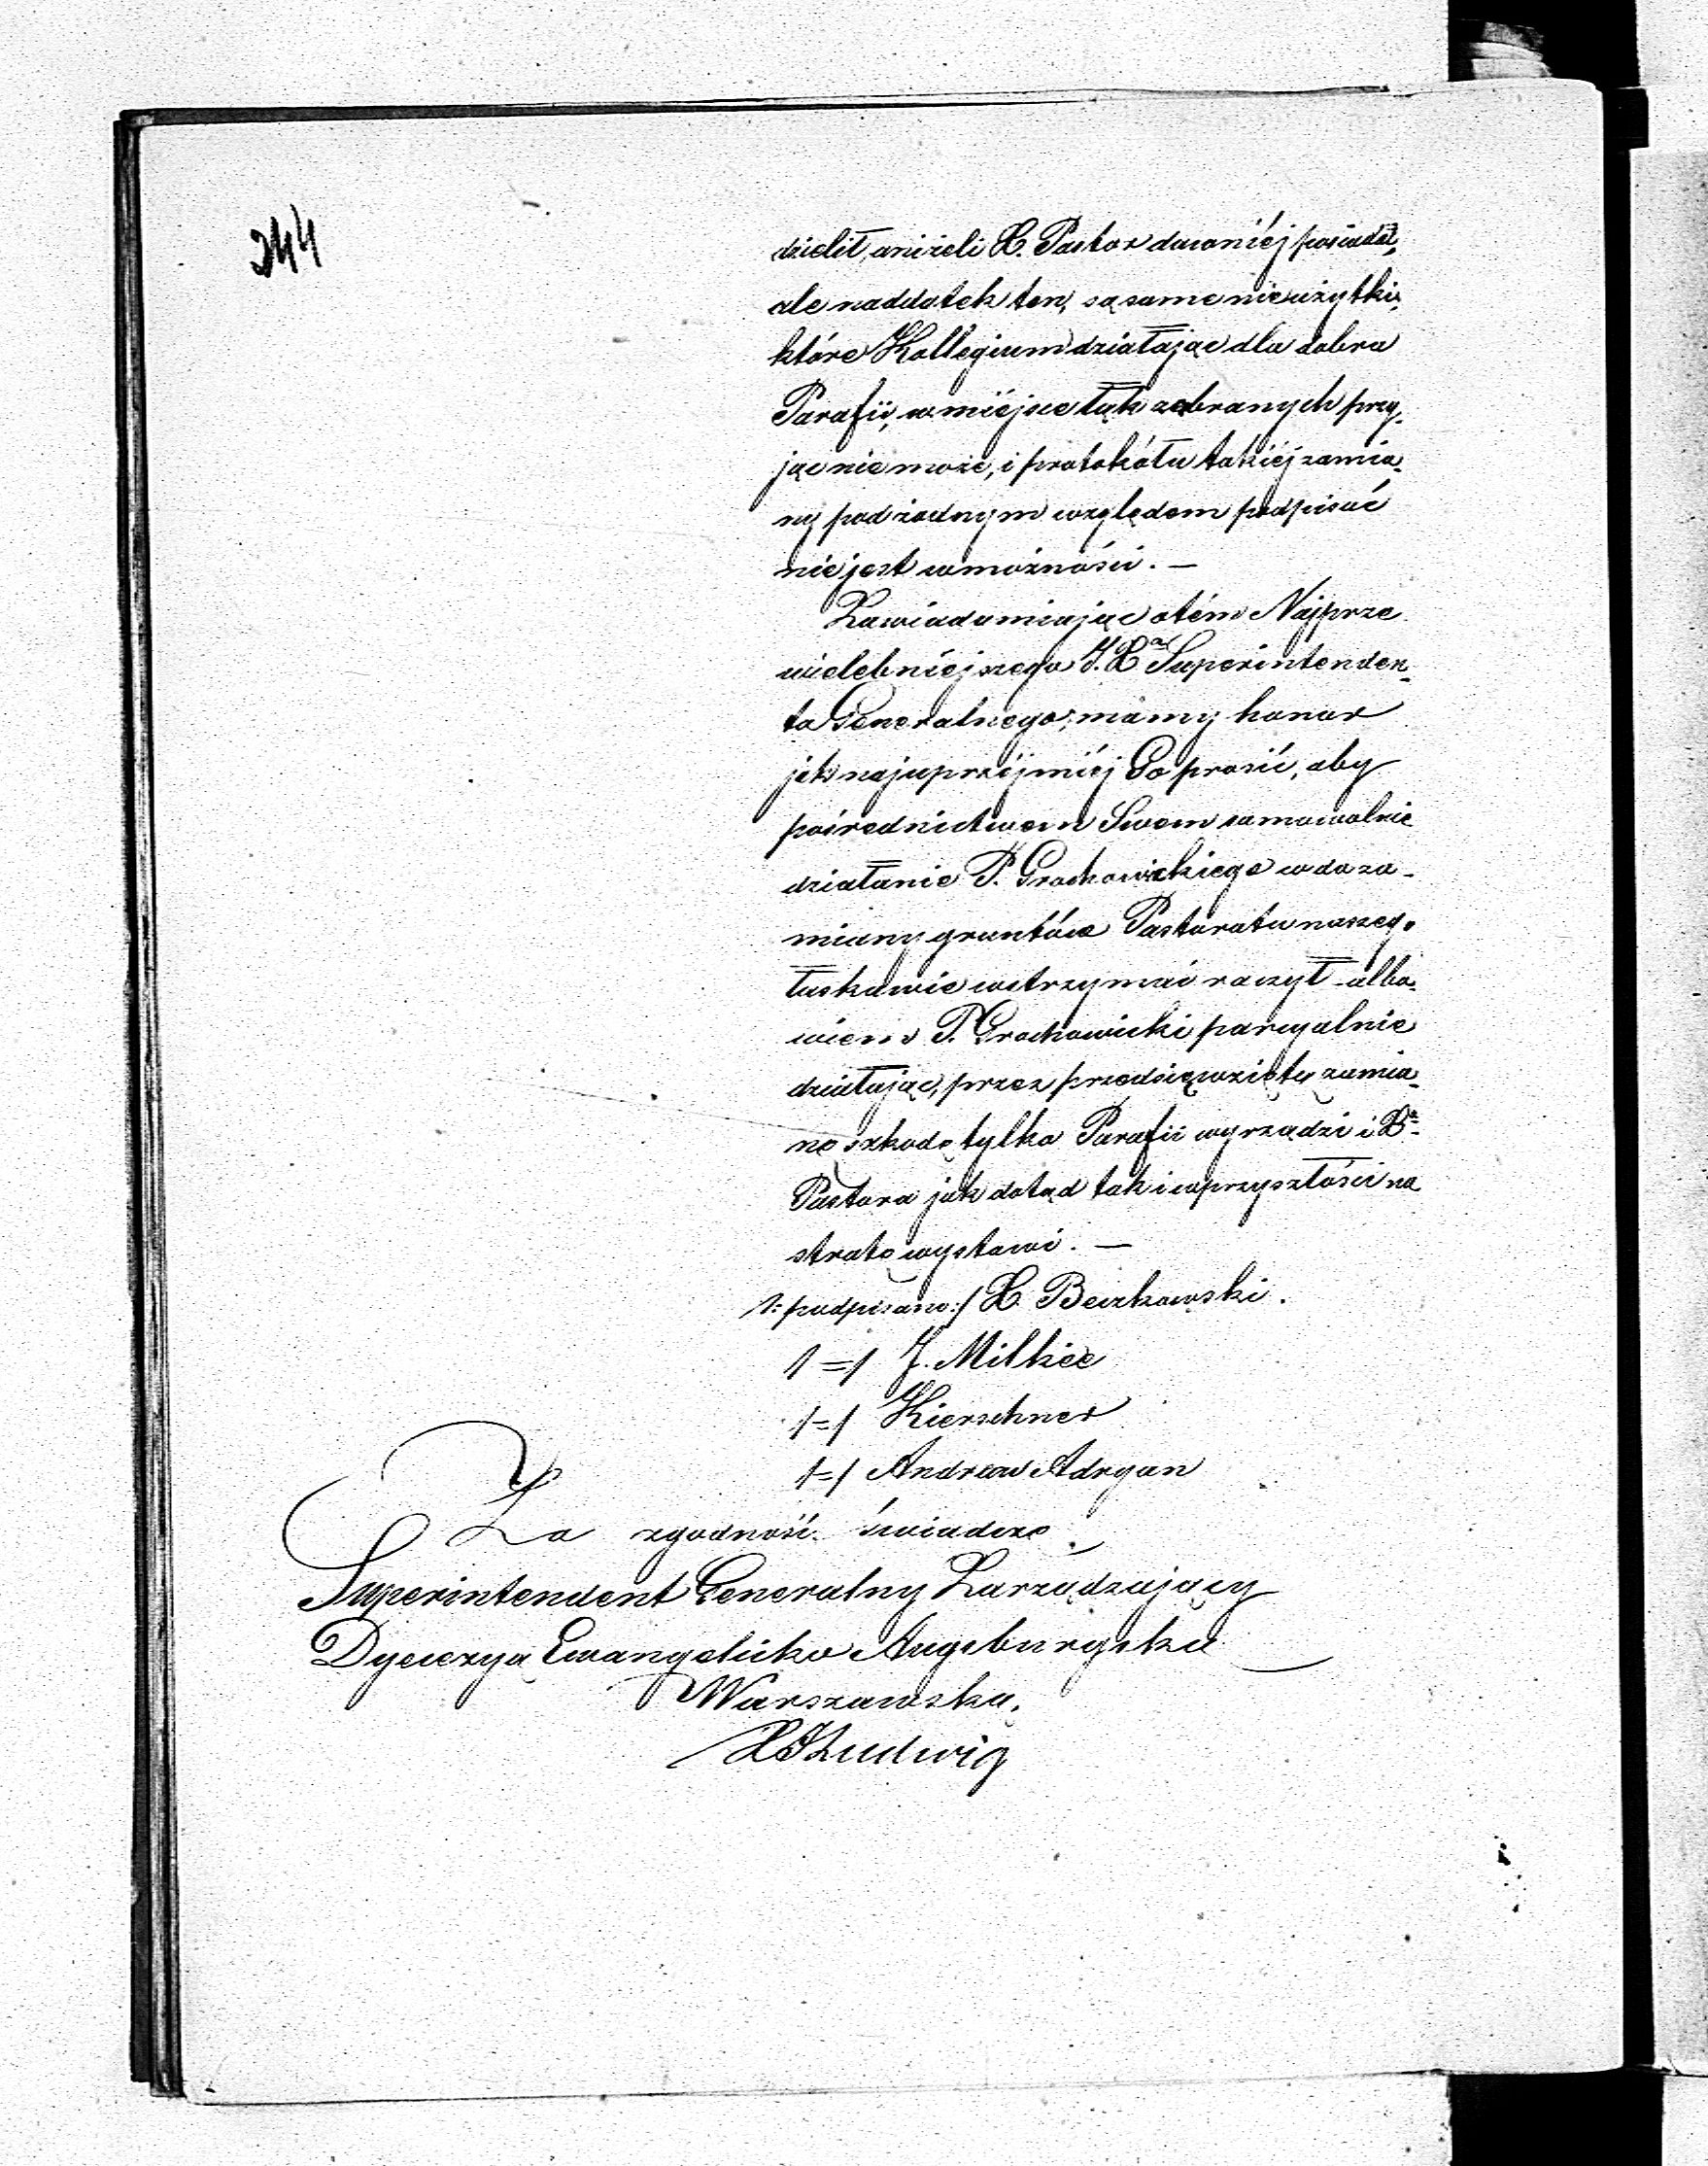 244
dzielił, aniżeli X. Pastor dawniéj posiadał,
ale naddatek ten, są same nieużytki,
które Kollegium działając dla dobra
Parafii, w miéjsce łąk zabranych przy-
jąc nie może, i protokółu takiéj zamia-
ny pod żadnym względem podpisać
nie jest w możności. —
Zawiadamiając otém Najprze
wielebniejszego J. Xa Superintenden-
ta Generalnego, mamy honor
jak najuprzéjmiéj Go prosić, aby
pośrednictwem Swem samowolnie
działanie P. Grochowickiego wdo za-
miany gruntów Pastoratu naszego
łaskawie wstrzymać raczył - albo-
wiem P. Grochowicki parcyalnie
działając, przez przedsięwziętą zamia-
nę szkodę tylko Parafii wyrządzi i Xa
Pastora jak dotąd tak i w przyszłości na
stratę wystawi. —
/:podpisano:/ X. Beczkowski.
/=/ J. Milkie
/=/ Kierschner
/=/ Andrew Adryan
Za zgodność świadczę.
Superintendent Generalny Zarządzający
Dyecezyą Ewangelicko Augsburgską
Warszawską.
X J Ludwig